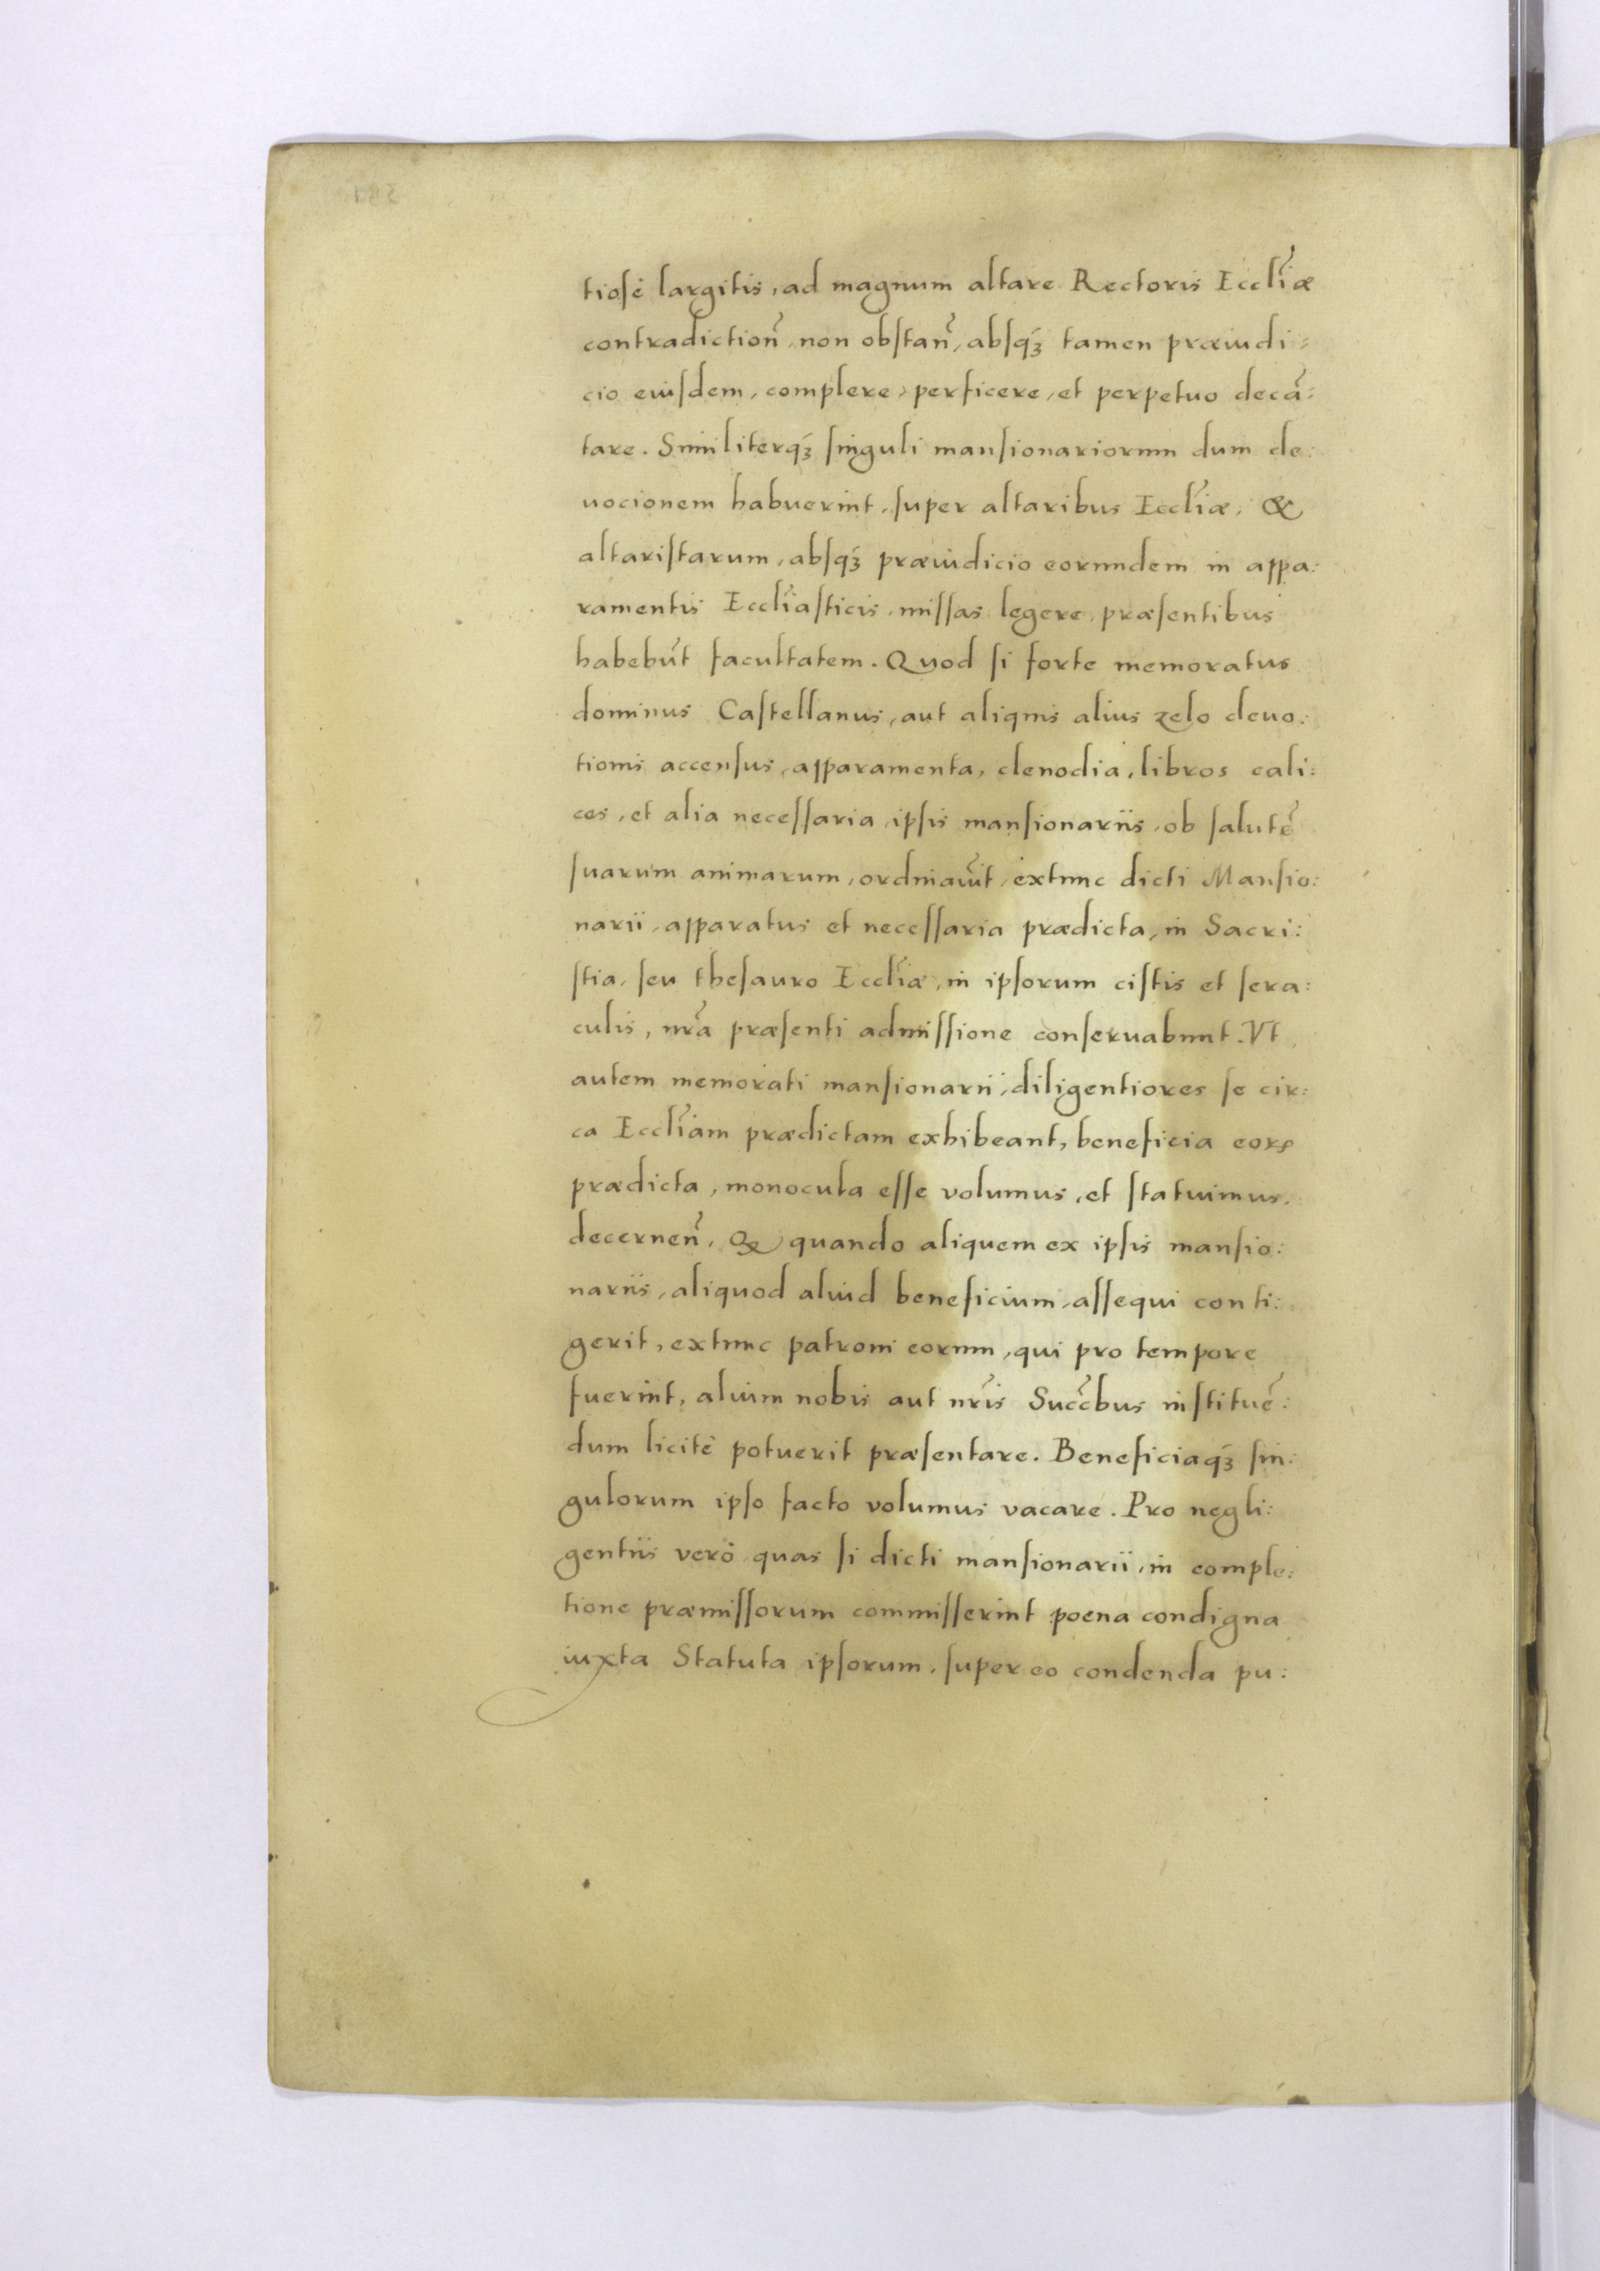 tiosè largitis, ad magnum altare Rectoris Eccl̃iæ
contradictioñ, non obstañ, absq́ꝫ tamen præiudi:
cio eiusdem, complere, perficere, et perpetuo decã:
tare. Similiterq́ꝫ singuli mansionariorum dum de:
uocionem habuerint, super altaribus Eccl̃iæ, &
altaristarum, absq́ꝫ præiudicio eorundem in appa:
ramentis Eccl̃iasticis, missas legere, præsentibus
habebũt facultatem. Quod si forte memoratus
dominus Castellanus, aut aliquis alius zelo deuo:
tionis accensus, apparamenta, clenodia, libros cali:
ces, et alia necessaria ipsis mansionariis, ob salutẽ
suarum animarum, ordinauĩt, extunc dicti Mansio:
narii, apparatus et necessaria prædicta, in Sacri:
stia, seu thesauro Eccl̃iæ, in ipsorum cistis et sera:
culis, nr̃a præsenti admissione conseruabunt. Vt
autem memorati mansionarii, diligentiores se cir:
ca Eccl̃iam prædictam exhibeant, beneficia eorꝝ
prædicta, monocula esse volumus, et statuimus.
decerneñ. Qꝫ quando aliquem ex ipsis mansio:
nariis, aliquod aliud beneficium, assequi conti:
gerit, extunc patroni eorum, qui pro tempore
fuerint, alium nobis aut nr̃is Succ̃bus instituẽ:
dum licitè potuerit præsentare. Beneficiaq́ꝫ sin:
gulorum ipso facto volumus vacare. Pro negli:
gentiis verò quas si dicti mansionarii, in comple:
tione præmissorum commisserint poena condigna
iuxta Statuta ipsorum, super eo condenda pu: